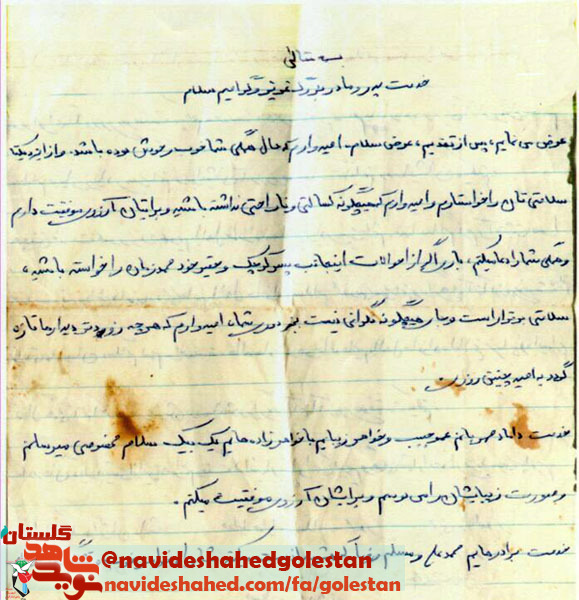 بسمه تعالی
خدمت پدر و مادر بزرگ عزیز و گرامیم سلام
عرض می نمایم، پس از تقدیم، عرض سلام. امیدوارم که حال همگی شما خوب و خوش بوده باشد. و از ایزد یکتا
سلامتی تان را خواستارم و امیدوارم که هیچگونه کسالتی و ناراحتی نداشته باشید و برایتان آرزوی موفقیت دارم
و همگی شما را دعا میکنم، باری اگر از احوالات اینجانب پسر کوچک و حقیر خود محمدزمان را خواسته باشید،
سلامتی برقرار است و جای هیچگونه نگرانی نیست بجز دوری شما، امیدوارم که هر چه زودتر دیدارها تازه
گردد به امید چنین روزی.
خدمت داماد مهربانم عمو حبیب و خواهر زیبایم با خواهرزاده هایم یک بیک سلام مخصوصی میرسانم
و صورت زیبایشان را می بوسم و برایشان آرزوی موفقیت میکنم.
خدمت برادرهایم محمدعلی و مسلم و
نوید شاهد گلستان
@navideshahedgolestan
navideshahed.com/fa/golestan